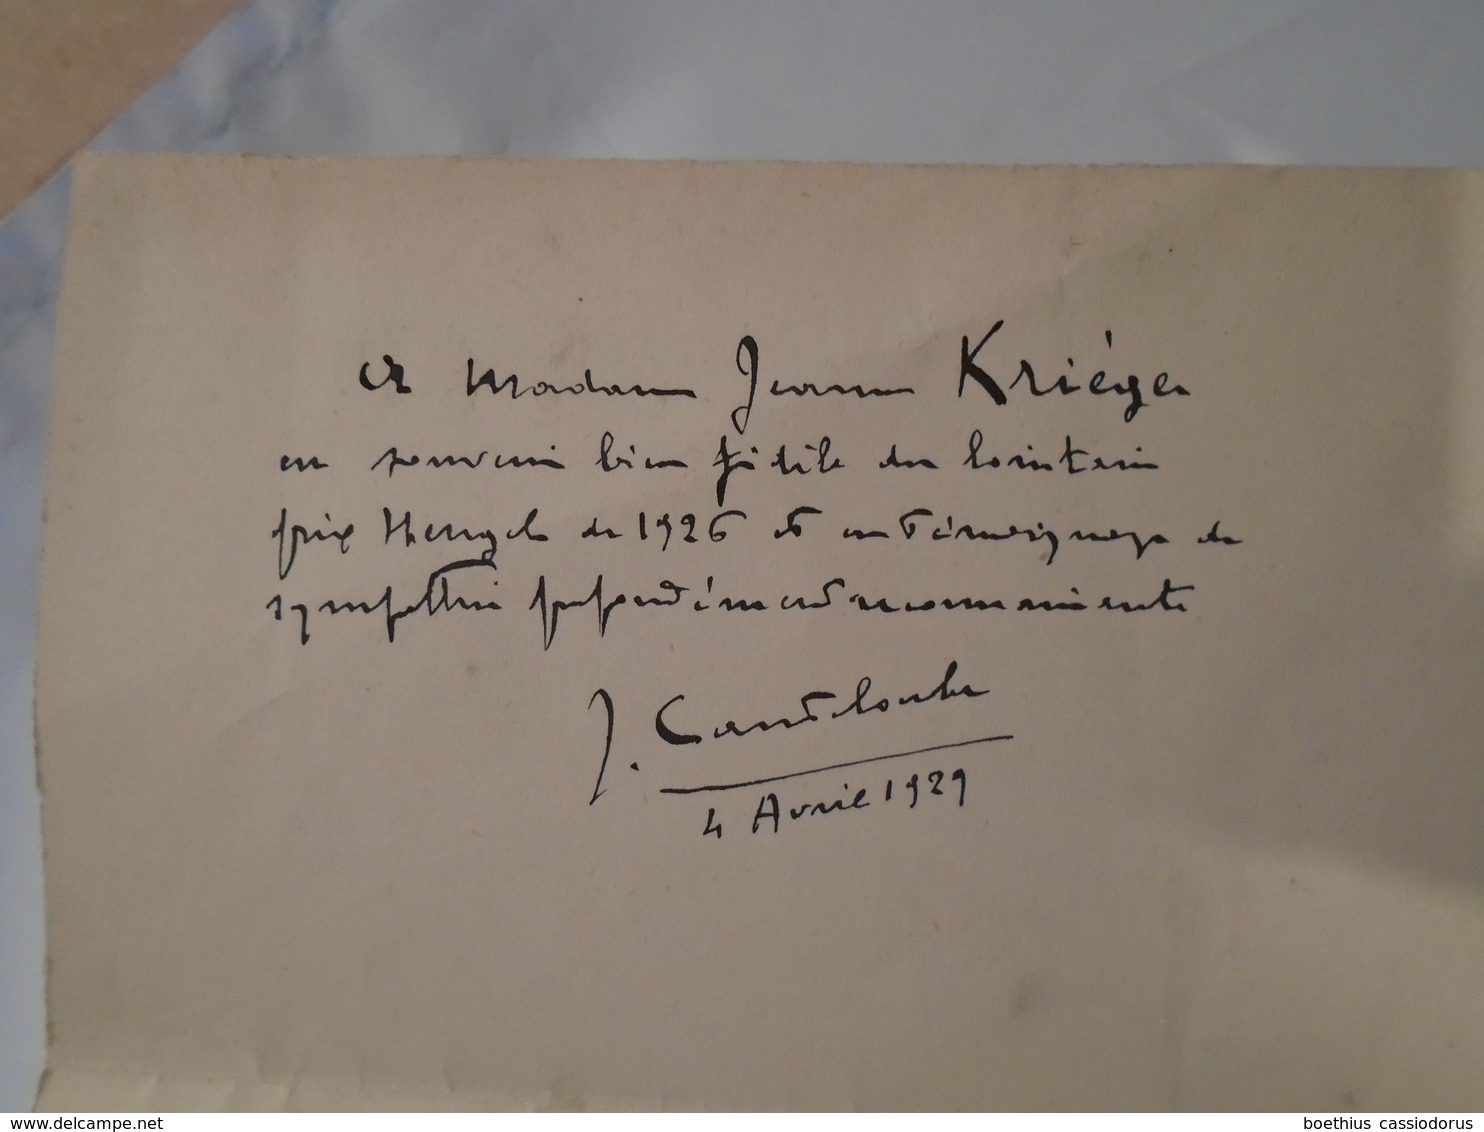 A Madame Jeanne Kriéger
en souvenir bien fidèle du lointain
prix Heugel de 1926 et en témoignage de
sympathie profondément reconnaissante
J. Canteloube
4 Avril 1929
www.delcampe.net
boethius cassiodorus